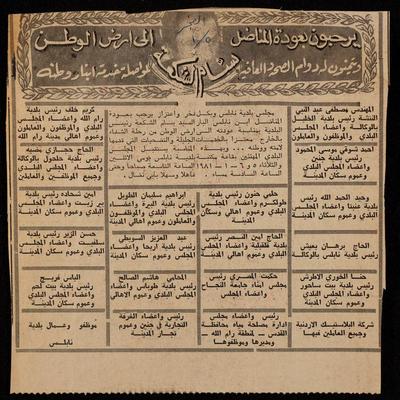 يرحبون بعودة المناضل
الى ارض الوطن
ويتمنون له دوام الصحة والعافية
لمواصلة خدمة ابناء وطنه
بسام الشكعة
مجلس بلدية نابلس وبكل فخر واعتزاز يرحب بعودة
المناضل رئيس بلدية نابلس السيد بسام الشكعة رئيس
البلدية بمناسبة عودته الى ارض الوطن من رحلة الشفاء
المهندس مصطفى عبد النبي
النتشة رئيس بلدية الخليل
بالوكالة واعضاء المجلس
البلدي والموظفون والعاملون
احمد شوقي موسى المحمود
رئيس بلدية جنين
واعضاء المجلس البلدي
وعموم سكان المدينة
وحيد الحمد الله رئيس
بلدية عنبتا واعضاء المجلس
البلدي وعموم سكان المدينة
الحاج برهان يعيش
رئيس بلدية نابلس بالوكالة
حنا الخوري الاطرش
رئيس بلدية بيت ساحور
واعضاء المجلس البلدي
وعموم سكان المدينة
شركة البلاستيك الاردنية
وجميع العاملين فيها
حلمي حنون رئيس بلدية
طولكرم واعضاء المجلس
البلدي وعموم اهالي وسكان
المدينة
الحاج امين النصر رئيس
بلدية قلقيلية واعضاء المجلس
البلدي وعموم سكان المدينة
حكمت المصري رئيس
مجلس امناء جامعة النجاح
واعضاء المجلس
رئيس واعضاء مجلس
ادارة مصلحة مياه محافظة
القدس - منطقة رام الله -
ومديرها وموظفوها
ابراهيم سليمان الطويل
رئيس بلدية البيرة واعضاء
المجلس البلدي والموظفون
والعاملون وعموم اهالي المدينة
العزيز السويطي
رئيس بلدية اريحا واعضاء
المجلس البلدي وعموم سكان
المدينة
المحامي هاشم الصالح
رئيس بلدية طوباس واعضاء
المجلس البلدي وعموم الاهالي
رئيس واعضاء الغرفة
التجارية في جنين وعموم
تجار المدينة
كريم خلف رئيس بلدية
رام الله واعضاء المجلس
البلدي والموظفون والعاملون
الحاج حجازي مضيه
رئيس بلدية حلحول بالوكالة
واعضاء المجلس البلدي
وجميع الموظفين والعاملين
امين شحاده رئيس بلدية
بير زيت واعضاء المجلس
البلدي وعموم سكان المدينة
حسن الزير رئيس بلدية
سلفيت واعضاء المجلس
البلدي وعموم سكان المدينة
الياس فريج
رئيس بلدية بيت لحم
واعضاء المجلس البلدي
وعموم سكان المدينة
موظفو وعمال بلدية
نابلس